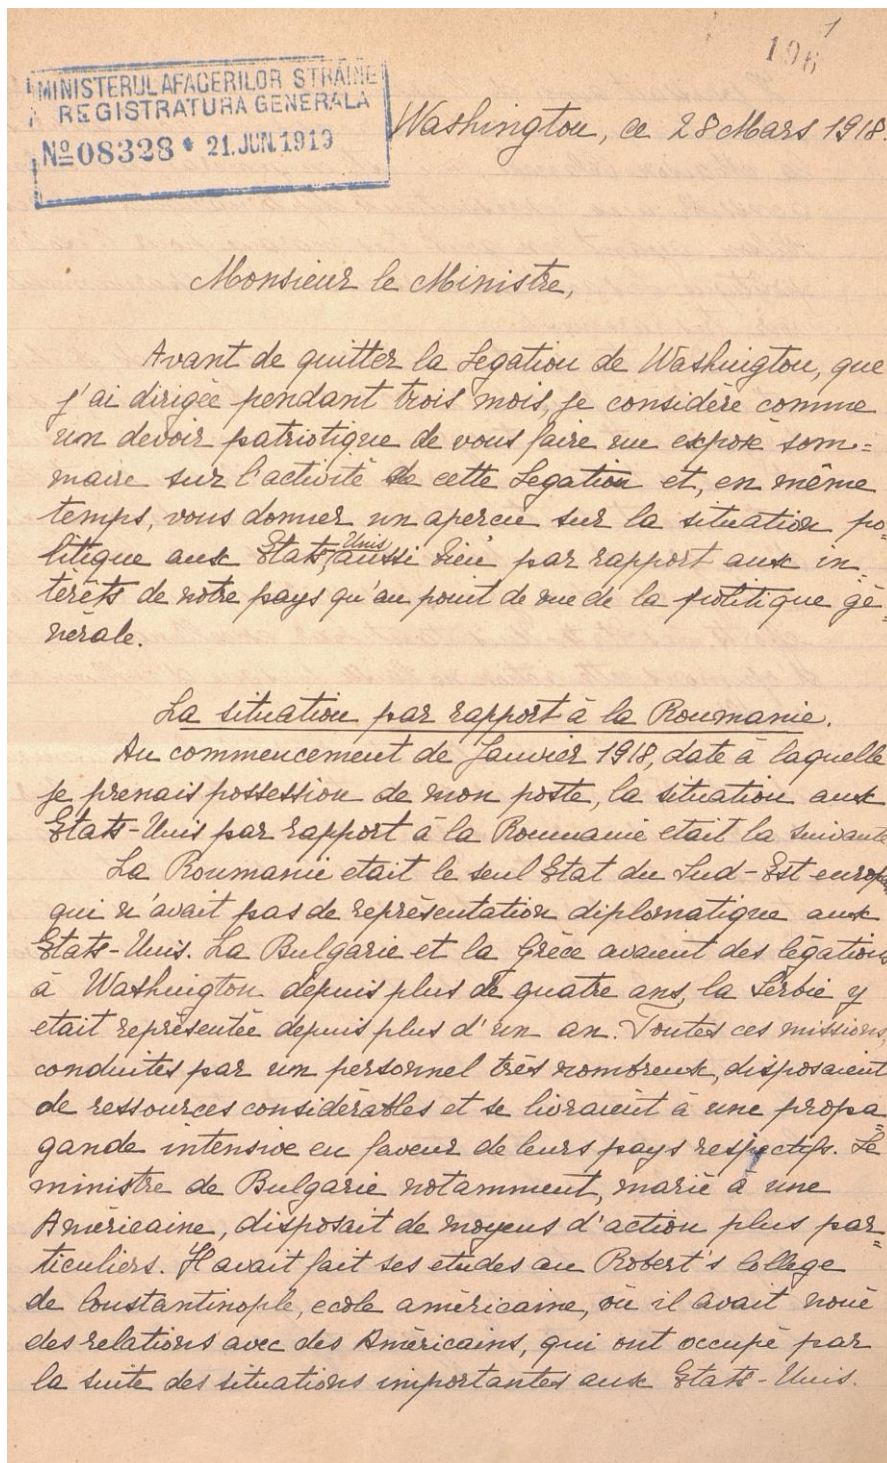 1
196
MINISTERUL AFACERILOR STRĂINE
REGISTRATURA GENERALA
No 08328 * 21.JUN.1919
Washington, ce 28 Mars 1918.
Monsieur le Ministre,
Avant de quitter la Legation de Washington, que
j'ai dirigée pendant trois mois, je considère comme
un devoir patriotique de vous faire un exposé som=
maire sur l'activité de cette Legation et, en même
temps, vous donner un apercu sur la situation po=
litique aux Etats, Unis aussi bien par rapport aux in=
térêts de notre pays qu'au point de vue de la politique gé=
nérale.
La situation par rapport à la Roumanie.
Au commencement de Janvier 1918, date à laquelle
je prenais possession de mon poste, la situation aux
Etats-Unis par rapport à la Roumanie etait la suivante
La Roumanie etait le seul Etat du Sud-Est europ
qui n'avait pas de représentation diplomatique aux
Etats-Unis. La Bulgarie et la Grèce avaient des légations
à Washington depuis plus de quatre ans, la Serbie y
etait représentée depuis plus d'un an. Toutes ces missions,
conduites par un personnel très nombreux, disposaient
de ressources considérables et se livraient à une propa=
gande intensive en faveur de leurs pays respectifs. Le
ministre de Bulgarie notamment, marié à une
Américaine, disposait de moyens d'action plus par=
ticuliers. Il avait fait ses etudes au Robert's College
de Constantinople, ecole américaine, où il avait noué
des relations avec des Américains, qui ont occupé par
la suite des situations importantes aux Etats-Unis.